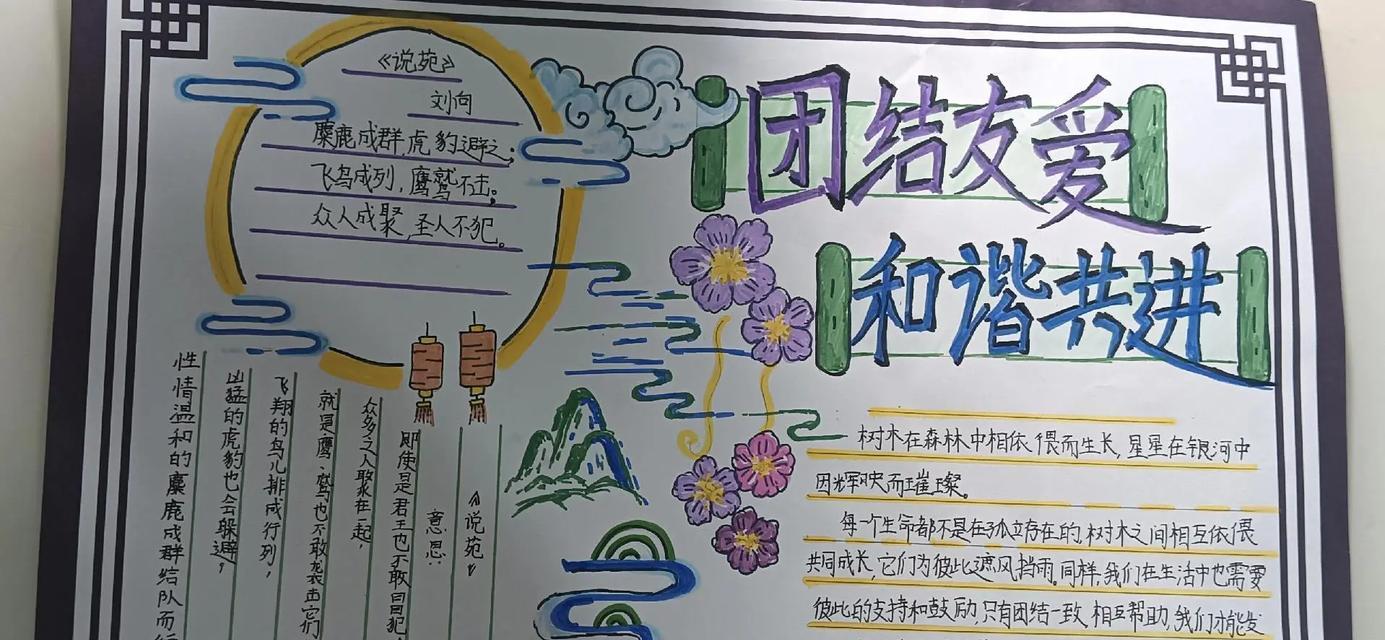 《说苑》
刘向
麋鹿成群,虎豹避之;
飞鸟成列,鹰鹫不击;
众人成聚,圣人不犯。
团结友爱
和谐共进
《说苑》
意思:
即使是君王也不敢冒犯,
众多之人聚在一起,
就是鹰、鹫也不敢袭击它们
飞翔的鸟儿排成行列,
凶猛的虎豹也会躲避,
性情温和的麋鹿成群结队而
树木在森林中相依偎而生长,星星在银河中
因辉映而璀璨。
每一个生命都不是在孤立存在的,树木之间相互依偎
共同成长,它们为彼此遮风挡雨。同样,我们在生活中也需要
彼此的支持和鼓励,只有团结一致,相互帮助,我们才能发